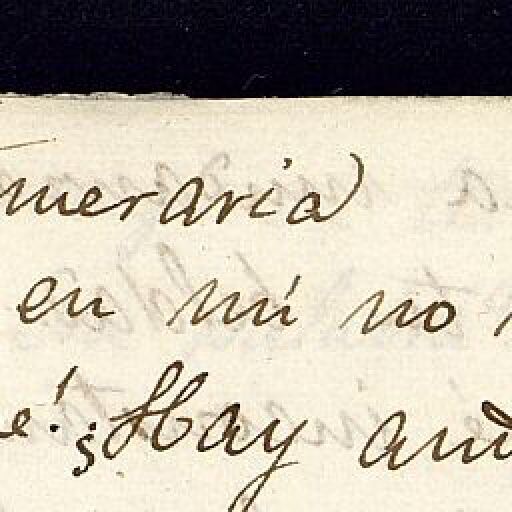 meraria
en mí no
e! ¿Hay